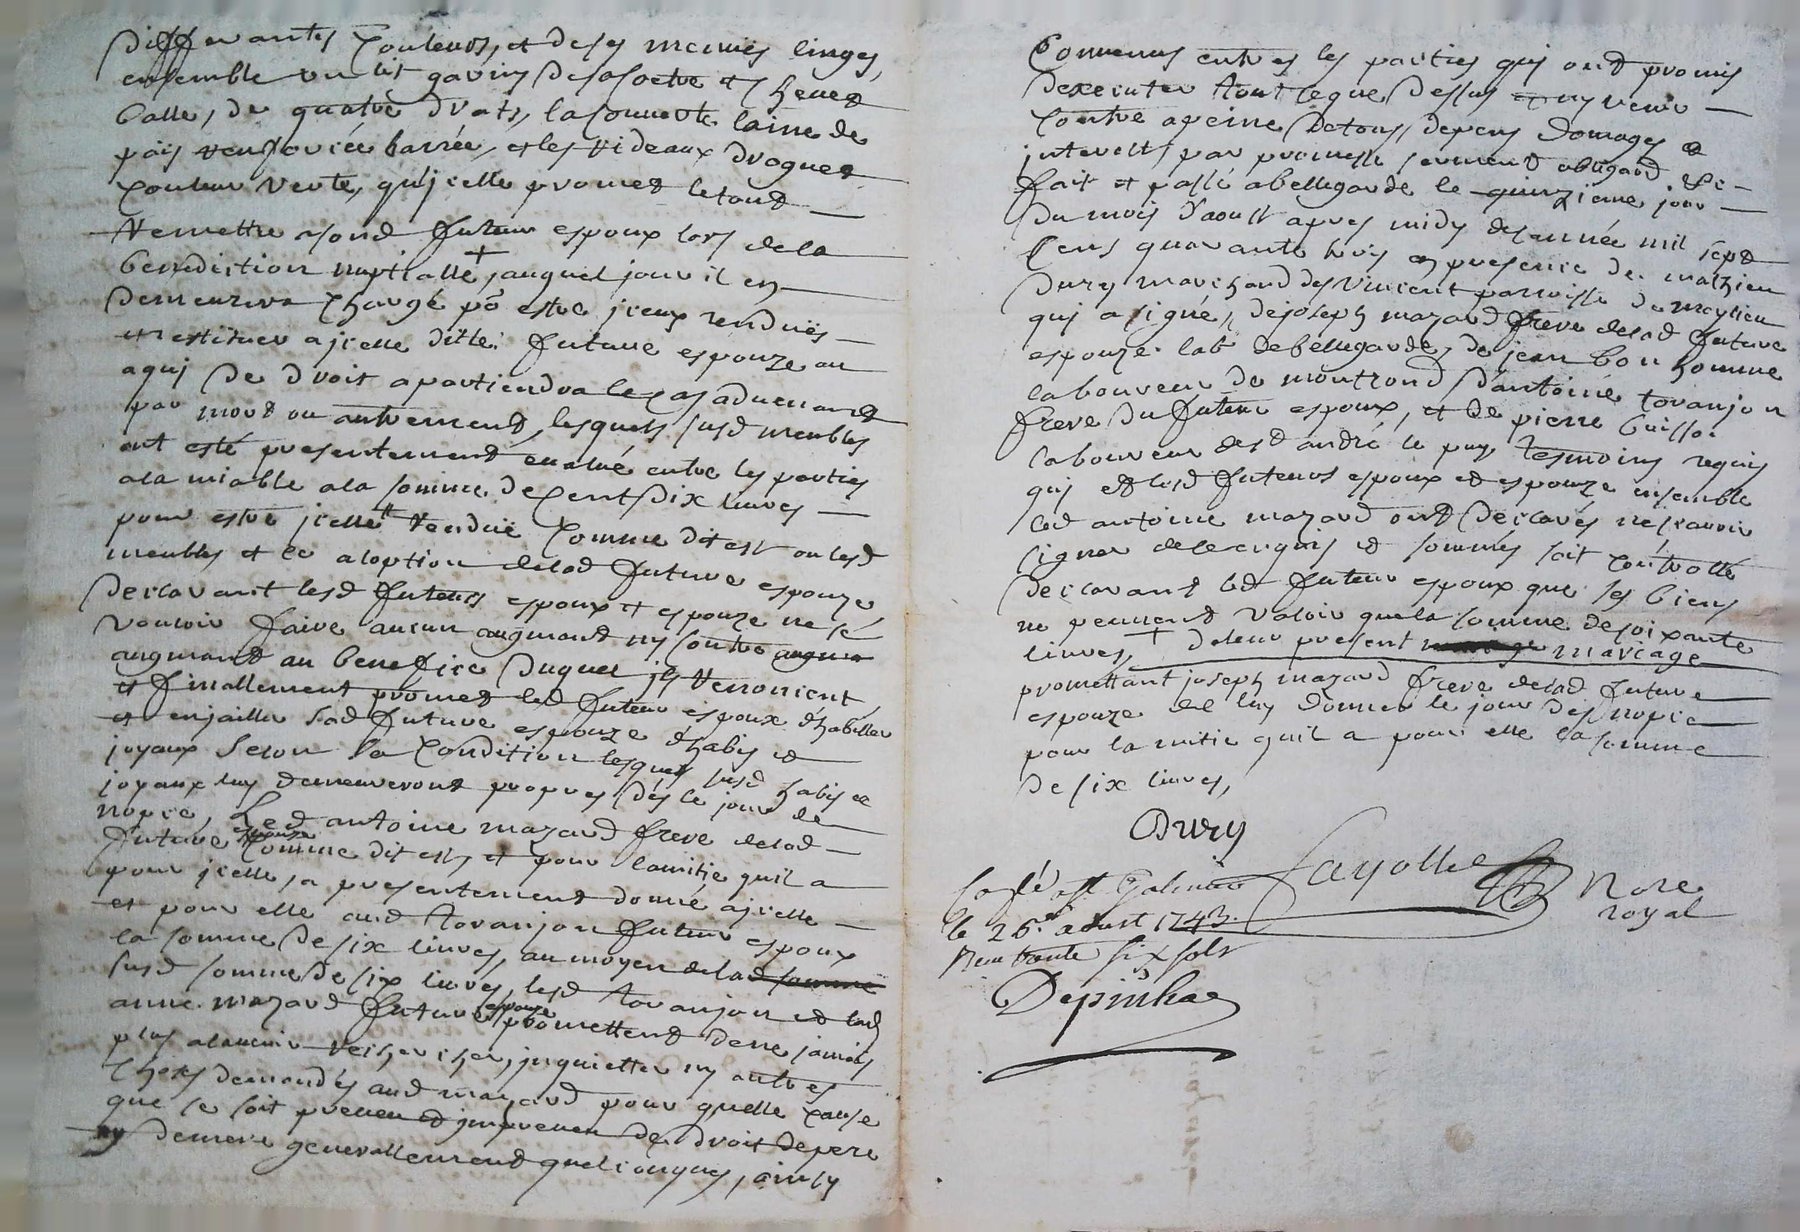 differantes couleurs, et de ses mesmes linges,
ensemble un lit garny de sa coetre et chevet
balle, de quatre draps, la couverte laine de
païs renforcée barrée, et les rideaux droguet
couleur verte, qu'jcelle promet le tout
remettre aud futeur espoux lors de la
benediction nuptialle + auquel jour il en
demeurera chargé pō estre jceux renduës
et restituer a jcelle ditte future espouze ou
a qui de droit apartiendra le cas advenant
par mort ou autrement, lesquels susd meubles
ont esté presentement evalué entre les parties
a la miable a la somme de cent dix livres
pour estre jcelle renduë comme dit est ou lesd
meubles et ce a loption de lad future espouze
declarant lesd futeurs espoux et espouze ne se
vouloir faire aucun augmant ny contre augma
augmant au benefice duquel jls renoncent
et finallement promet led futeur espoux d'habiller
et enjailler sad future espouze d'habis et
joyaux selon sa condition lesquels susd habis et
joyaux luy demeureront propres des le jour de
nopce, Led antoine mazard frere de lad
future espouze comme dit est, et pour lamitie quil a
pour jcelle, a presentement donné a jcelle
et pour elle aud toranjon futeur espoux
la somme de six livres, au moyen de lad somme
susd somme de six livres, lesd toranjon et lad
anne mazard future espouze promettent de ne jamais
plus a lavenir rechercher, jnquietter ny autres
choses demandés aud mazard pour quelle cause
que se soit preveu et jmpreveu de droit de pere
ny de mere generallement quelconques, ainsy
Convenus entres les parties qui ont promis
dexecuter tout ce que dessus et ny venir
contre a peine de tous depens domages et
jnterests par promesse serment obligaōn &c
fait et passé a bellegarde le quinzieme jour
du mois d'aoust apres midy de lannée mil sept
cens quarante trois en presence de mathieu
Dury marchand de St vincent parroisse de meylieu
qui a signé, de joseph mazard frere de lad future
espouze lab de bellegarde, de jean bonhomme
laboureur de montrond d'antoine toranjon
frere du futeur espoux, et de pierre buisso.
laboureur de St andré le puy, tesmoins requis
qui et lesd futeurs espoux et espouze ensemble
led antoine mazard ont declarés ne scavoir
signer de ce enquis et sommés soit controllé
declarant led futeur espoux que ses biens
ne peuvent valoir que la somme de soixante
livres, + de leur present mariage
promettant joseph mazard frere de lad future
espouze de luy donner le jour des nopce
pour lamitie quil a pour elle la somme
de six livres,
Dury
Fayolle
Nore
royal
Conlé a St Galmier
le 26e aoust 1743.
Reçu trante six sols
Depinhac